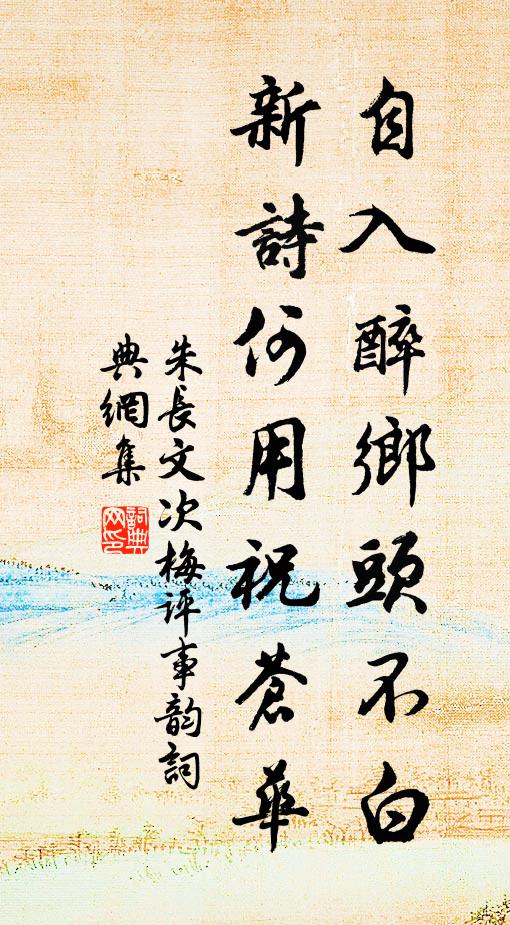 自入醉鄉頭不白
新詩何用祝蒼華
朱長文次梅評事韵詞
典網集
詞典
网印